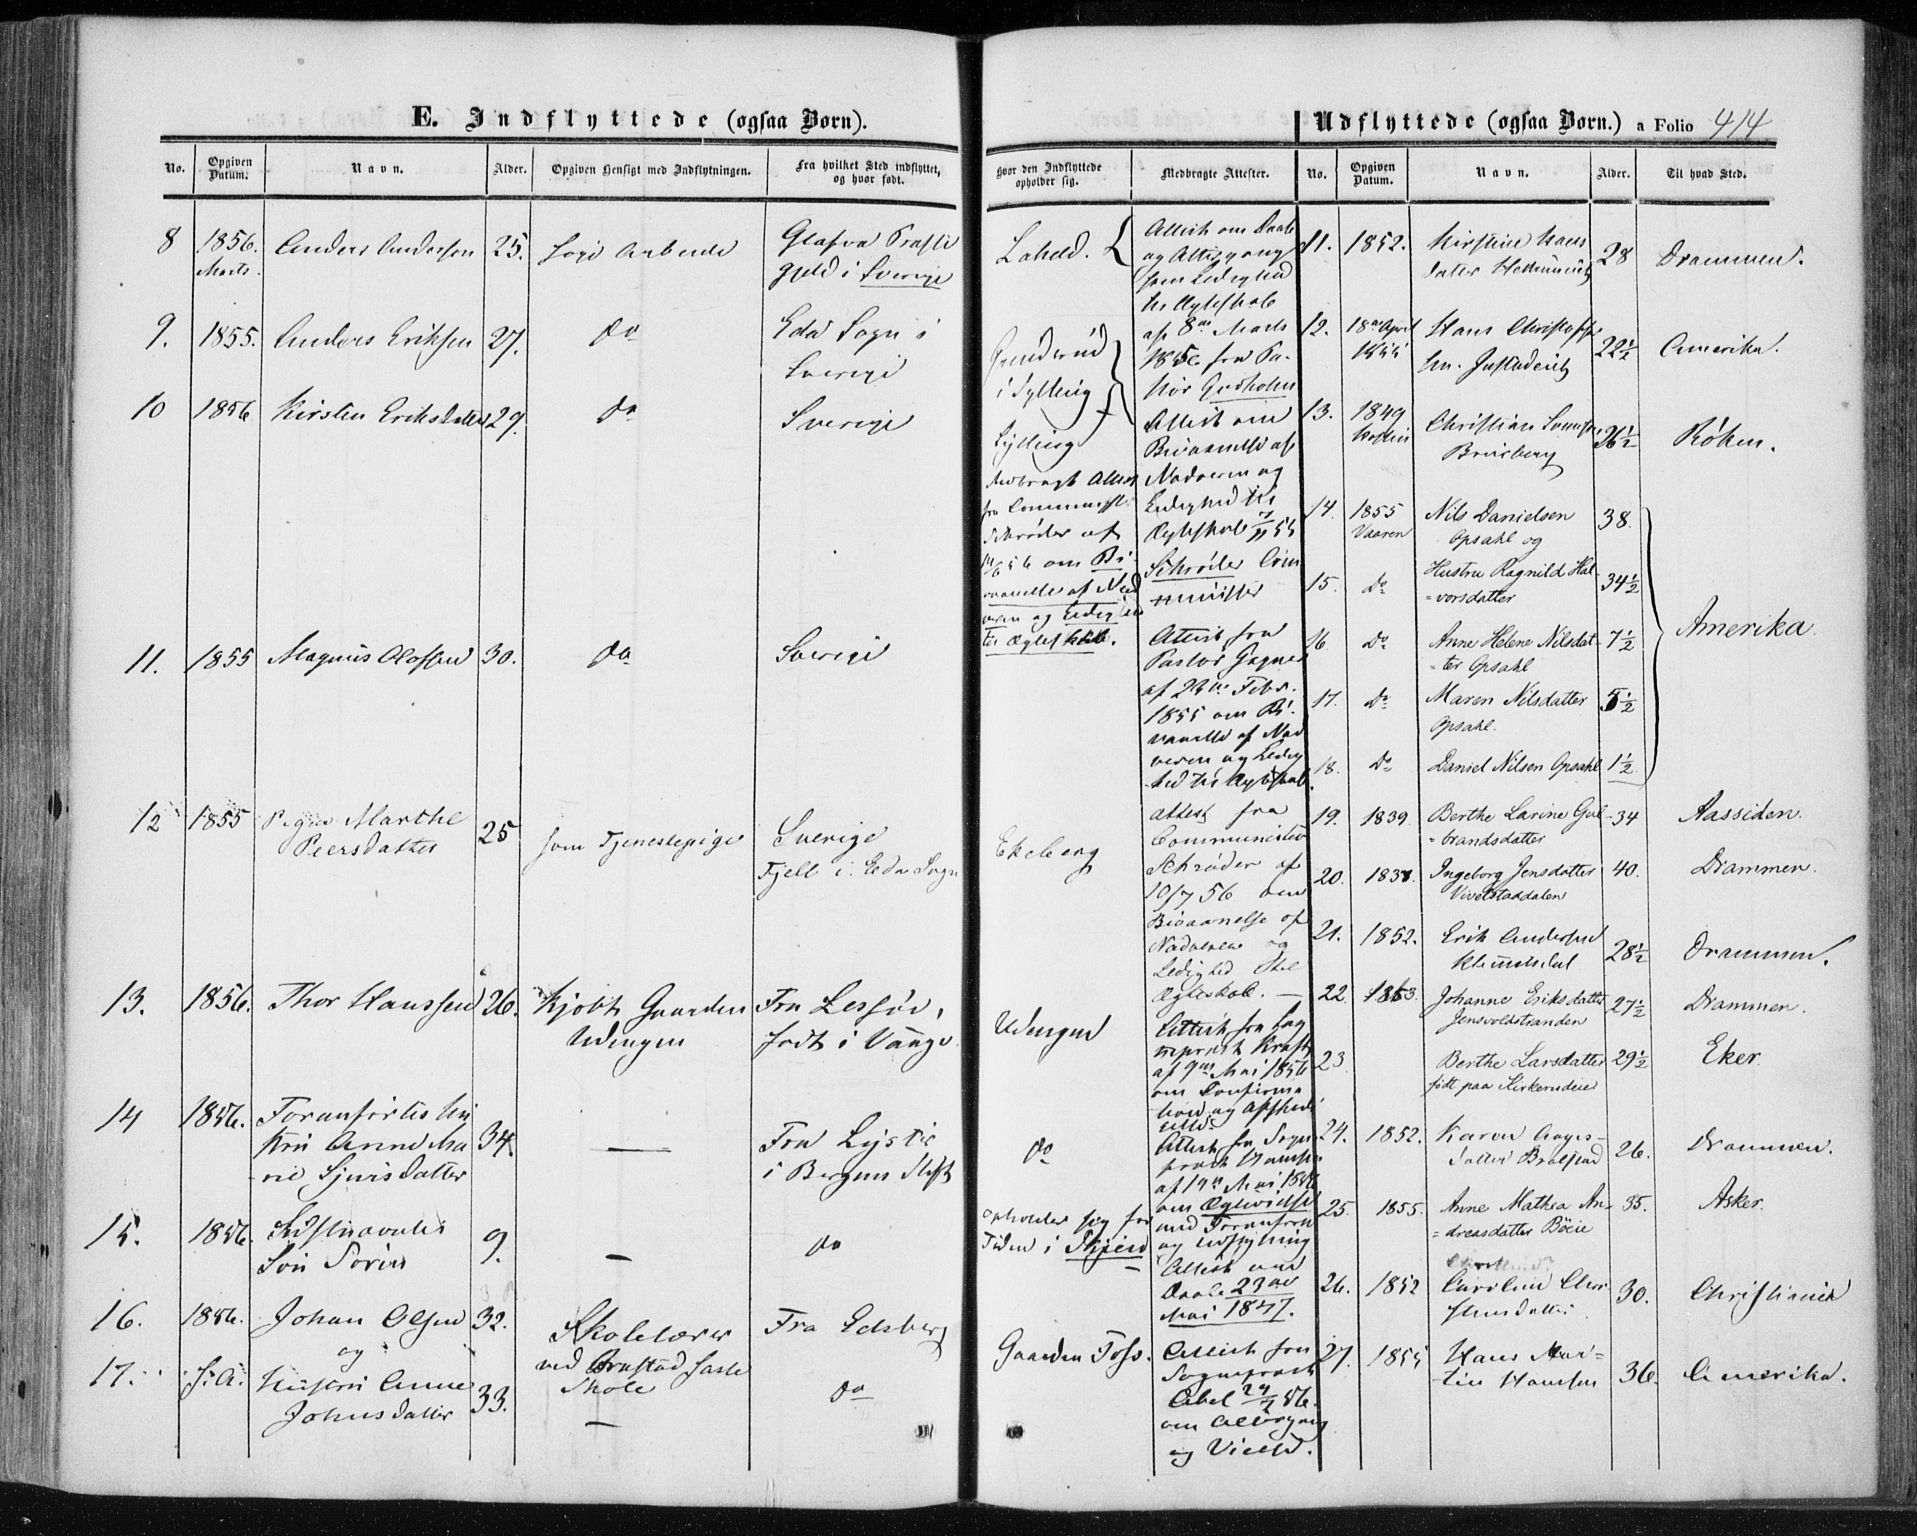 E. Indflyttede (ogsaa Børn).
Udflyttede (ogsaa Børn.) a Folio 414
No.
Opgiven Datum.
Navn.
Alder.
Opgiven Hensigt med Indflytningen.
Fra hvilket Sted indflyttet, og hvor født.
Hvor den Indflyttede opholder sig.
Medbragte Attester.
No.
Opgiven Datum.
Navn.
Alder.
Til hvad Sted.
8 1856. Anders Anderson 25. Søge Arbeide Glafva Præste
Marts. gjeld i Sverige
9. 1855. Anders Eriksen 27. do Eda Sogn i
Sverige
10 1856 Kirsten Eriksdatter 29. do Sverige
11. 1855 Magnus Olofsen 30. do Sverige
12 1855 Pigen Marthe 25 som Tjenestepige Sverige
Peersdatter Fjell i Eda Sogn
13. 1856. Thor Hanssen 26. Kjøbt Gaarden Fra Lessøe,
Udengen født i Vange
14 1856. Foranførtes Hu
stru Anne Ma 34 — Fra Lyster
rie Sjursdatter i Bergens Stift
15. 1856. Sidstnævntes
Søn Søren 9. — do
16. 1856. Johan Olsen 32. Skolelærer Fra Edsberg
og ved Arnestad faste
17. s. A. Hustru Anne 33. Skole do
Johnsdatter —
Lahell.
i Sylling
Sylling
Medbragt Attest
fra Comminist
Schrøder af
56 om Bi
vaanelse af Nad
veren og Ledighed
til Ægteskab.
Ekeberg
Udengen
do
opholder sig for
Tiden i Skjeie
Gaarden Foss.
Attest om Daab
og Altergang
som Ledighed
til Ægteskab
af 8de Marts
1856 fra Pa-
stor Godholm
Attest om
Bivaanelse af
Nadveren og
Ledighed til
Ægteskab 7/11 55
Schrøder Com
minister
Attest fra
Pastor
af 23de Febr.
1855 om Bi-
vaanelse af Nad
veren og Ledig
hed til Ægteskab.
Attest fra
Comminister
Schrøder af
10/7 56 om
Bivaanelse af
Nadveren og
Ledighed til
Ægteskab. —
Attest fra Sog
neprest Kraft
af 9de Mai 1856
om Confirma
tion og
Attest fra Sogne
prest Hansen
af 19de Mai 1856
om Ægtevielse
med Foranførte
og Udflytning
Attest om
Daab 23de
Mai 1847.
Attest fra
Sogneprest
Abel 56.
om Altergang
og Vielse.
11. 1852. Kirstine Hans 28 Drammen.
datter
12. 18de April Hans Christoffer 22½ Amerika.
1855 sen.
13. 1849 Christian 26½ Røken.
14. 1855 Nils Danielsen 38.
Vaaren Opsahl og
15. Do Hustru Ragnild Hal 34½
=vorsdatter
16 Do Anne Helene Nilsdat 7½ Amerika.
=ter Opsahl
17. Do Maren Nilsdatter 5½
Opsahl.
18. Do Daniel Nilsen Opsahl 1½
19. 1839. Berthe Larine Gul 34 Aassiden.
=brandsdatter
20. 1838. Ingeborg Jensdatter 40. Drammen.
Vivelstaddalen
21. 1852. Erik Andersen 28½ Drammen.
22. 1853. Johanne Eriksdatter 27½ Drammen.
Jensvoldstranden
23 Berthe Larsdatter 29½ Eker.
født paa Kirkerudeie
24. 1852. Karen Aages- 26. Drammen.
datter
25. 1855. Anne Mathea An- 35. Asker.
=dreasdatter Böeie
26. 1852 Caroline Chri 30. Christiania
stensdatter
27. 1855 Hans Mar- 36. Amerika.
tin Hansen